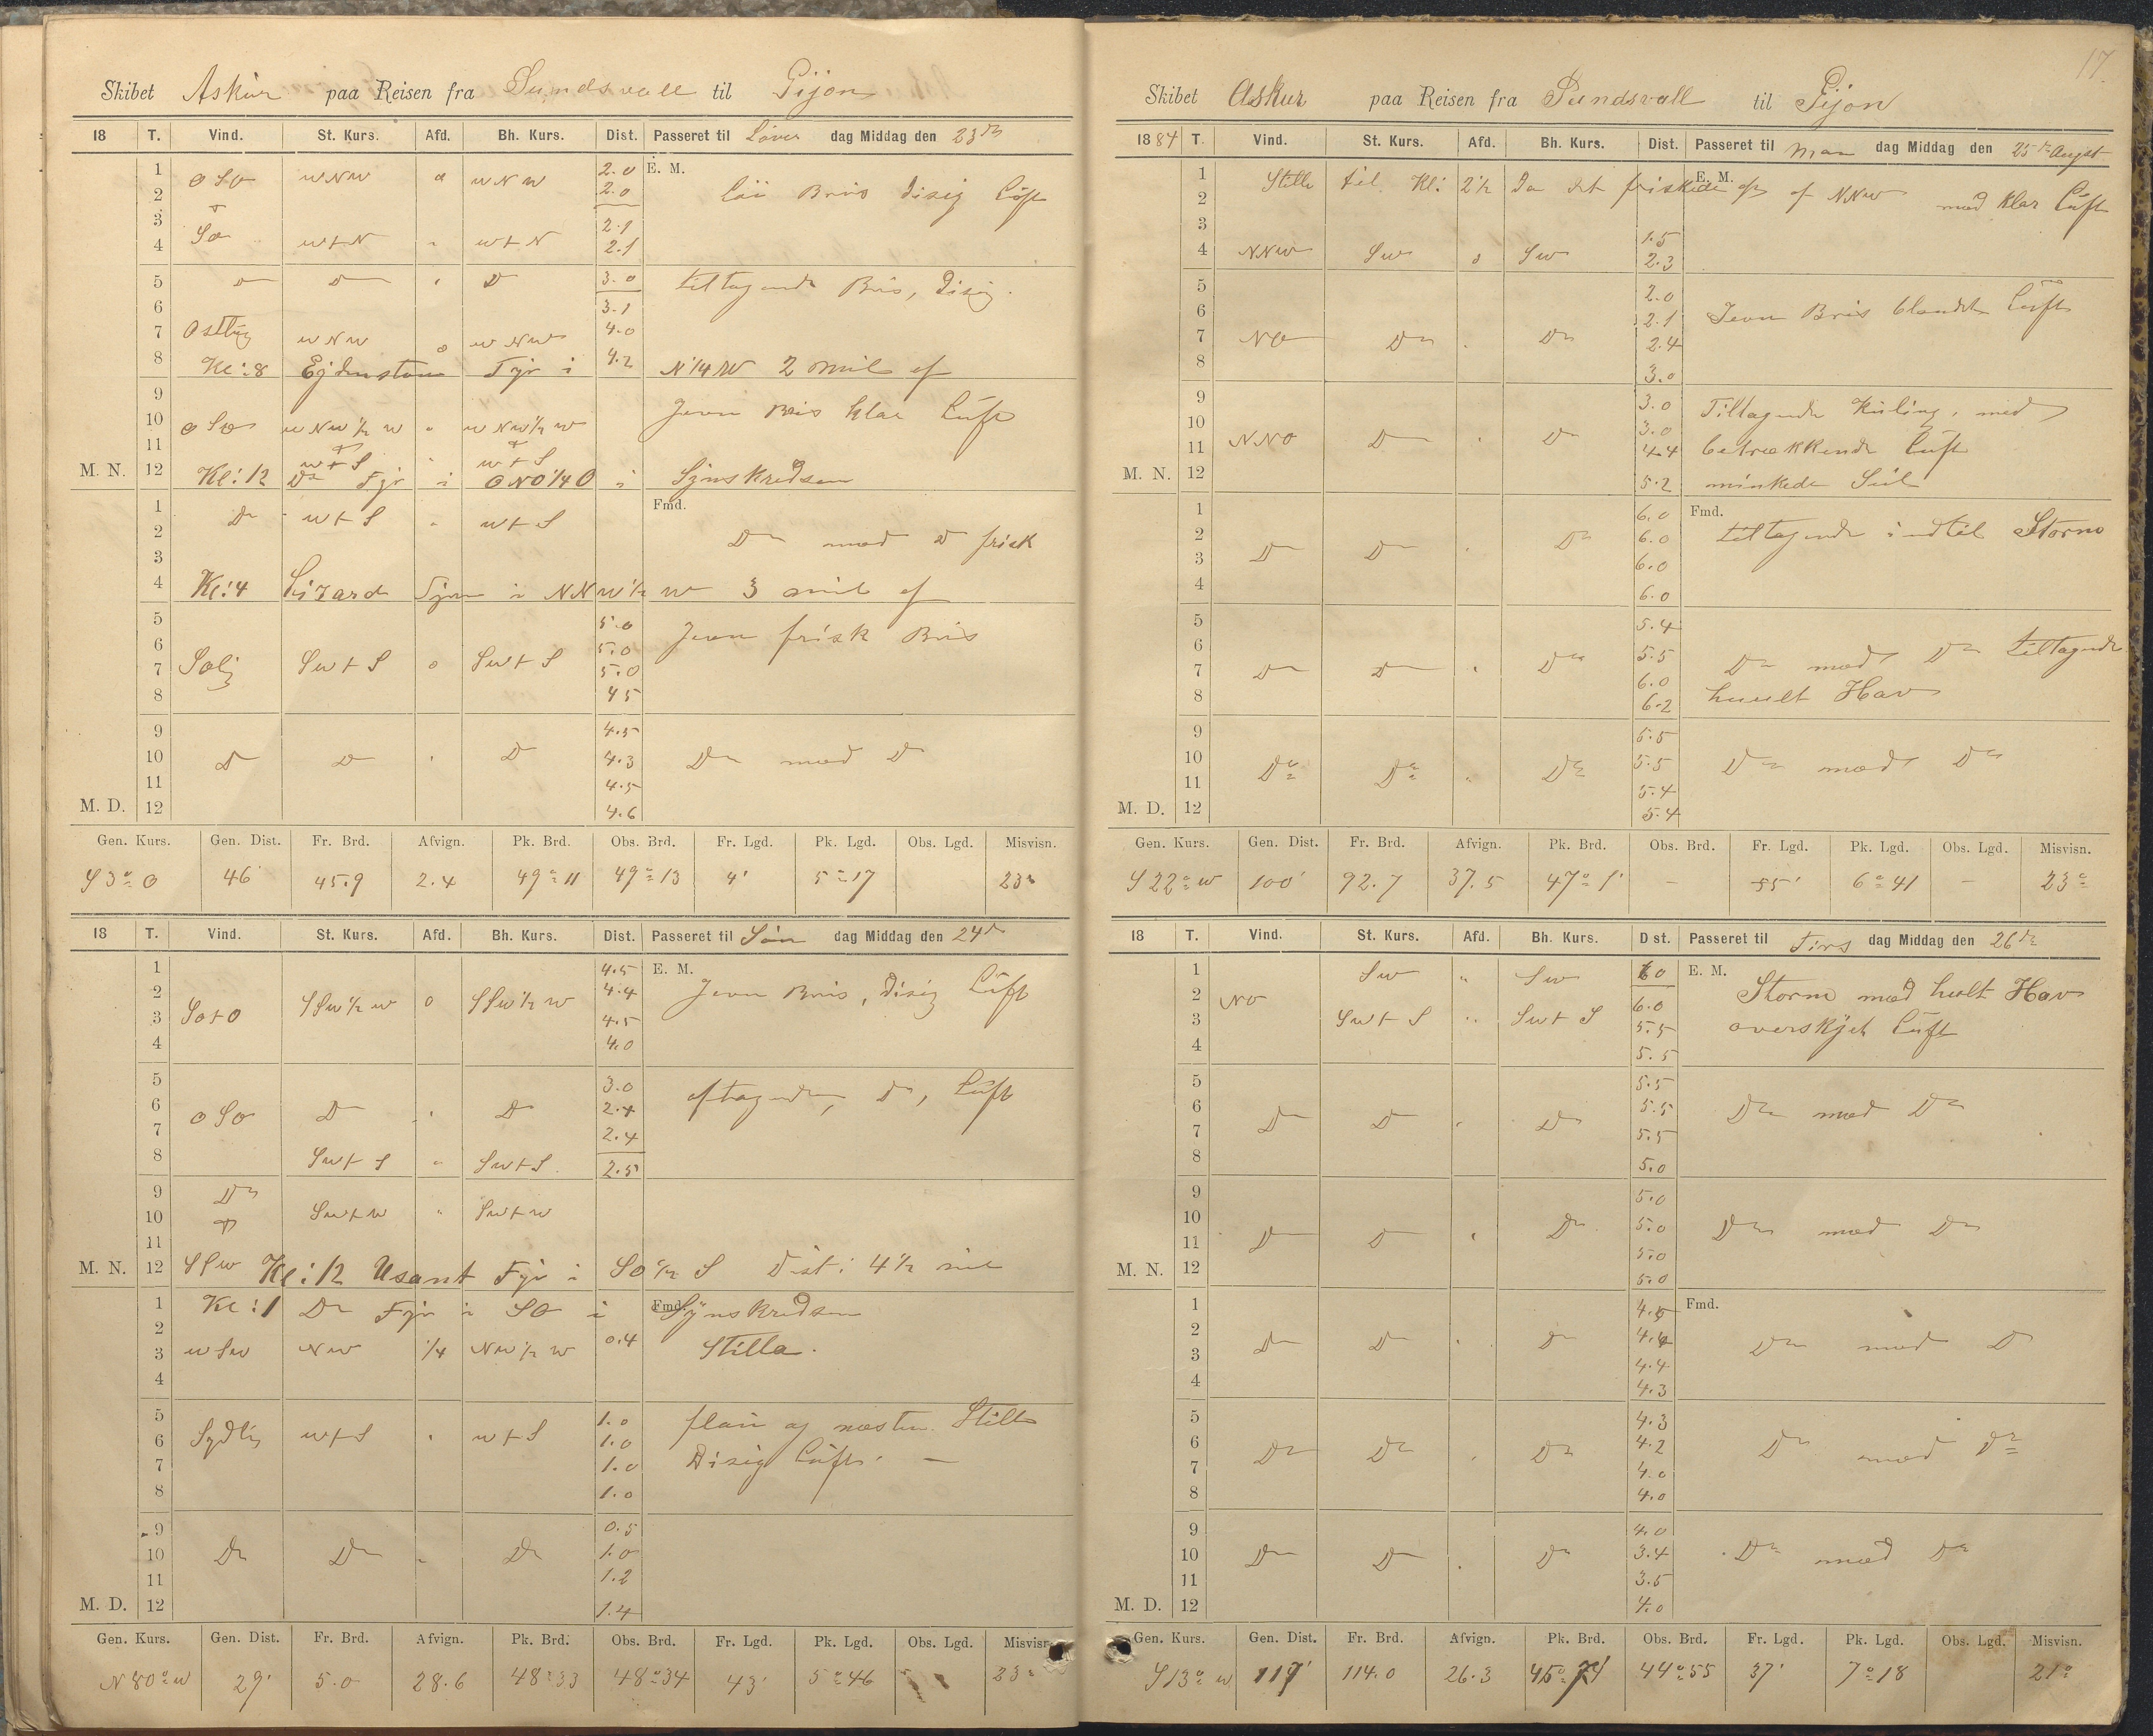 Skibet Askur paa Reisen fra Sundsvall til Gijon
18 T. Vind. St. Kurs. Afd. Bh. Kurs. Dist. Passeret til Löver dag Middag den 23de
1 2.0 E. M.
2 O S O W N W 0 W N W 2.0 Lai Bris disig Luft
3 2.1
4 S O W t N " W t N 2.1
5 D D " D 3.0 tiltagende Bris, disig.
6 3.1
7 Ostlig W N W 0 W N W 4.0
8 Kl: 8 Fyr i 4.2 N 1/4 W 2 mil af
9
10 O S O W N W 1/2 W " W N W 1/2 W Jevn Bris klar Luft
11 W t S " W t S
M. N. 12 Kl: 12 Do Fyr i O N O 1/4 O i Synskredsen
1 Do W t S " W t S Fmd.
2 Do med D frisk
3
4 Kl: 4 Lizard Fyr i N N W 1/2 W 3 mil af
5 5.0 Jevn frisk Bris
6 5.0
7 Solig S W t S 0 S W t S 5.0
8 4 5
9 4.5
10 D D " D 4.3 Do med D
11 4.5
M. D. 12 4.6
Gen. Kurs. Gen. Dist. Fr. Brd. Afvign. Pk. Brd. Obs. Brd. Fr. Lgd. Pk. Lgd. Obs. Lgd. Misvisn.
S 3° O 46 45.9 2.4 49° 11 49° 13 4' 5° 17 23°
18 T. Vind. St. Kurs. Afd. Bh. Kurs. Dist. Passeret til Søn dag Middag den 24de
1 4.5 E. M.
2 S S W 1/2 W 0 S S W 1/2 W 4.4 Jevn Bris, disig Luft
3 S O t O 4.5
4 4.0
5 3.0
6 O S O D " D 2.4 aftagende, Do, Luft
7 2.4
8 S W t S " S W t S 2.5
9 Do
10 S W t W " S W t W
11
M. N. 12 S S W Kl: 12 Usant Fyr i S O 1/2 S Dist: 4 1/2 mil
1 Kl: 1 Do Fyr i S O i Fmd. Synskredsen
2 0.4
3 W S W N W 1/4 N W 1/2 W Stilla.
4
5 1.0 flau og næsten Stille
6 Sydlig W t S " W t S 1.0
7 1.0 Disig Luft. —
8 1.0
9 0.5
10 Do Do " Do 1.0
11 1.2
M. D. 12 1.4
Gen. Kurs. Gen. Dist. Fr. Brd. Afvign. Pk. Brd. Obs. Brd. Fr. Lgd. Pk. Lgd. Obs. Lgd. Misvisn.
N 80° W 29' 5.0 28.6 48° 33 48° 34 43' 5° 46 23°
17.
Skibet Askur paa Reisen fra Sundsvall til Gijon
1884 T. Vind. St. Kurs. Afd. Bh. Kurs. Dist. Passeret til Man dag Middag den 25de August
1 Stille til Kl: 2 1/2 Da det friskede op af N N W med klar Luft E. M.
2
3 1.5
4 N N W S W 0 S W 2.3
5 2.0
6 2.1 Jevn Bris blandet Luft
7 N O Do . Do 2.4
8 3.0
9 3.0 Tiltagende Kuling, med
10 3.0
11 N N O D " D 4.4 betrækkende Luft
M. N. 12 5.2 minkede Seil
1 6.0 Fmd.
2 6.0 tiltagende indtil Storm
3 D D . Do 6.0
4 6.0
5 5.4
6 5.5 Do med Do tiltagende
7 D D " Do 6.0
8 6.2 huult Hav
9 5.5
10 Do Do " Do 5.5 Do med Do
11 5.4
M. D. 12 5.4
Gen. Kurs. Gen. Dist. Fr. Brd. Afvign. Pk. Brd. Obs. Brd. Fr. Lgd. Pk. Lgd. Obs. Lgd. Misvisn.
S 22° W 100' 92.7 37.5 47° 1' — 55' 6° 41 — 23°
18 T. Vind. St. Kurs. Afd. Bh. Kurs. D st. Passeret til Tirs dag Middag den 26de
1 S W " S W 6 0 E. M.
2 N O 6.0 Storm med hult Hav
3 S W t S " S W t S 5.5 overskyet Luft
4 5.5
5 5.5
6 D D " D 5.5 Do med Do
7 5.5
8 5.0
9 5.0
10 D D " Do 5.0 Do med Do
11 5.0
M. N. 12 5.0
1 4.5 Fmd.
2 D D . D 4.4 Do med D
3 4.4
4 4.3
5 4.3
6 Do Do . Do 4.2 Do med Do
7 4.0
8 4.0
9 4.0
10 D D . Do 3.4 Do med Do
11 3.5
M. D. 12 4.0
Gen. Kurs. Gen. Dist. Fr. Brd. Afvign. Pk. Brd. Obs. Brd. Fr. Lgd. Pk. Lgd. Obs. Lgd. Misvisn.
S 13° W 117' 114.0 26.3 45° 44° 55 37' 7° 18 21°